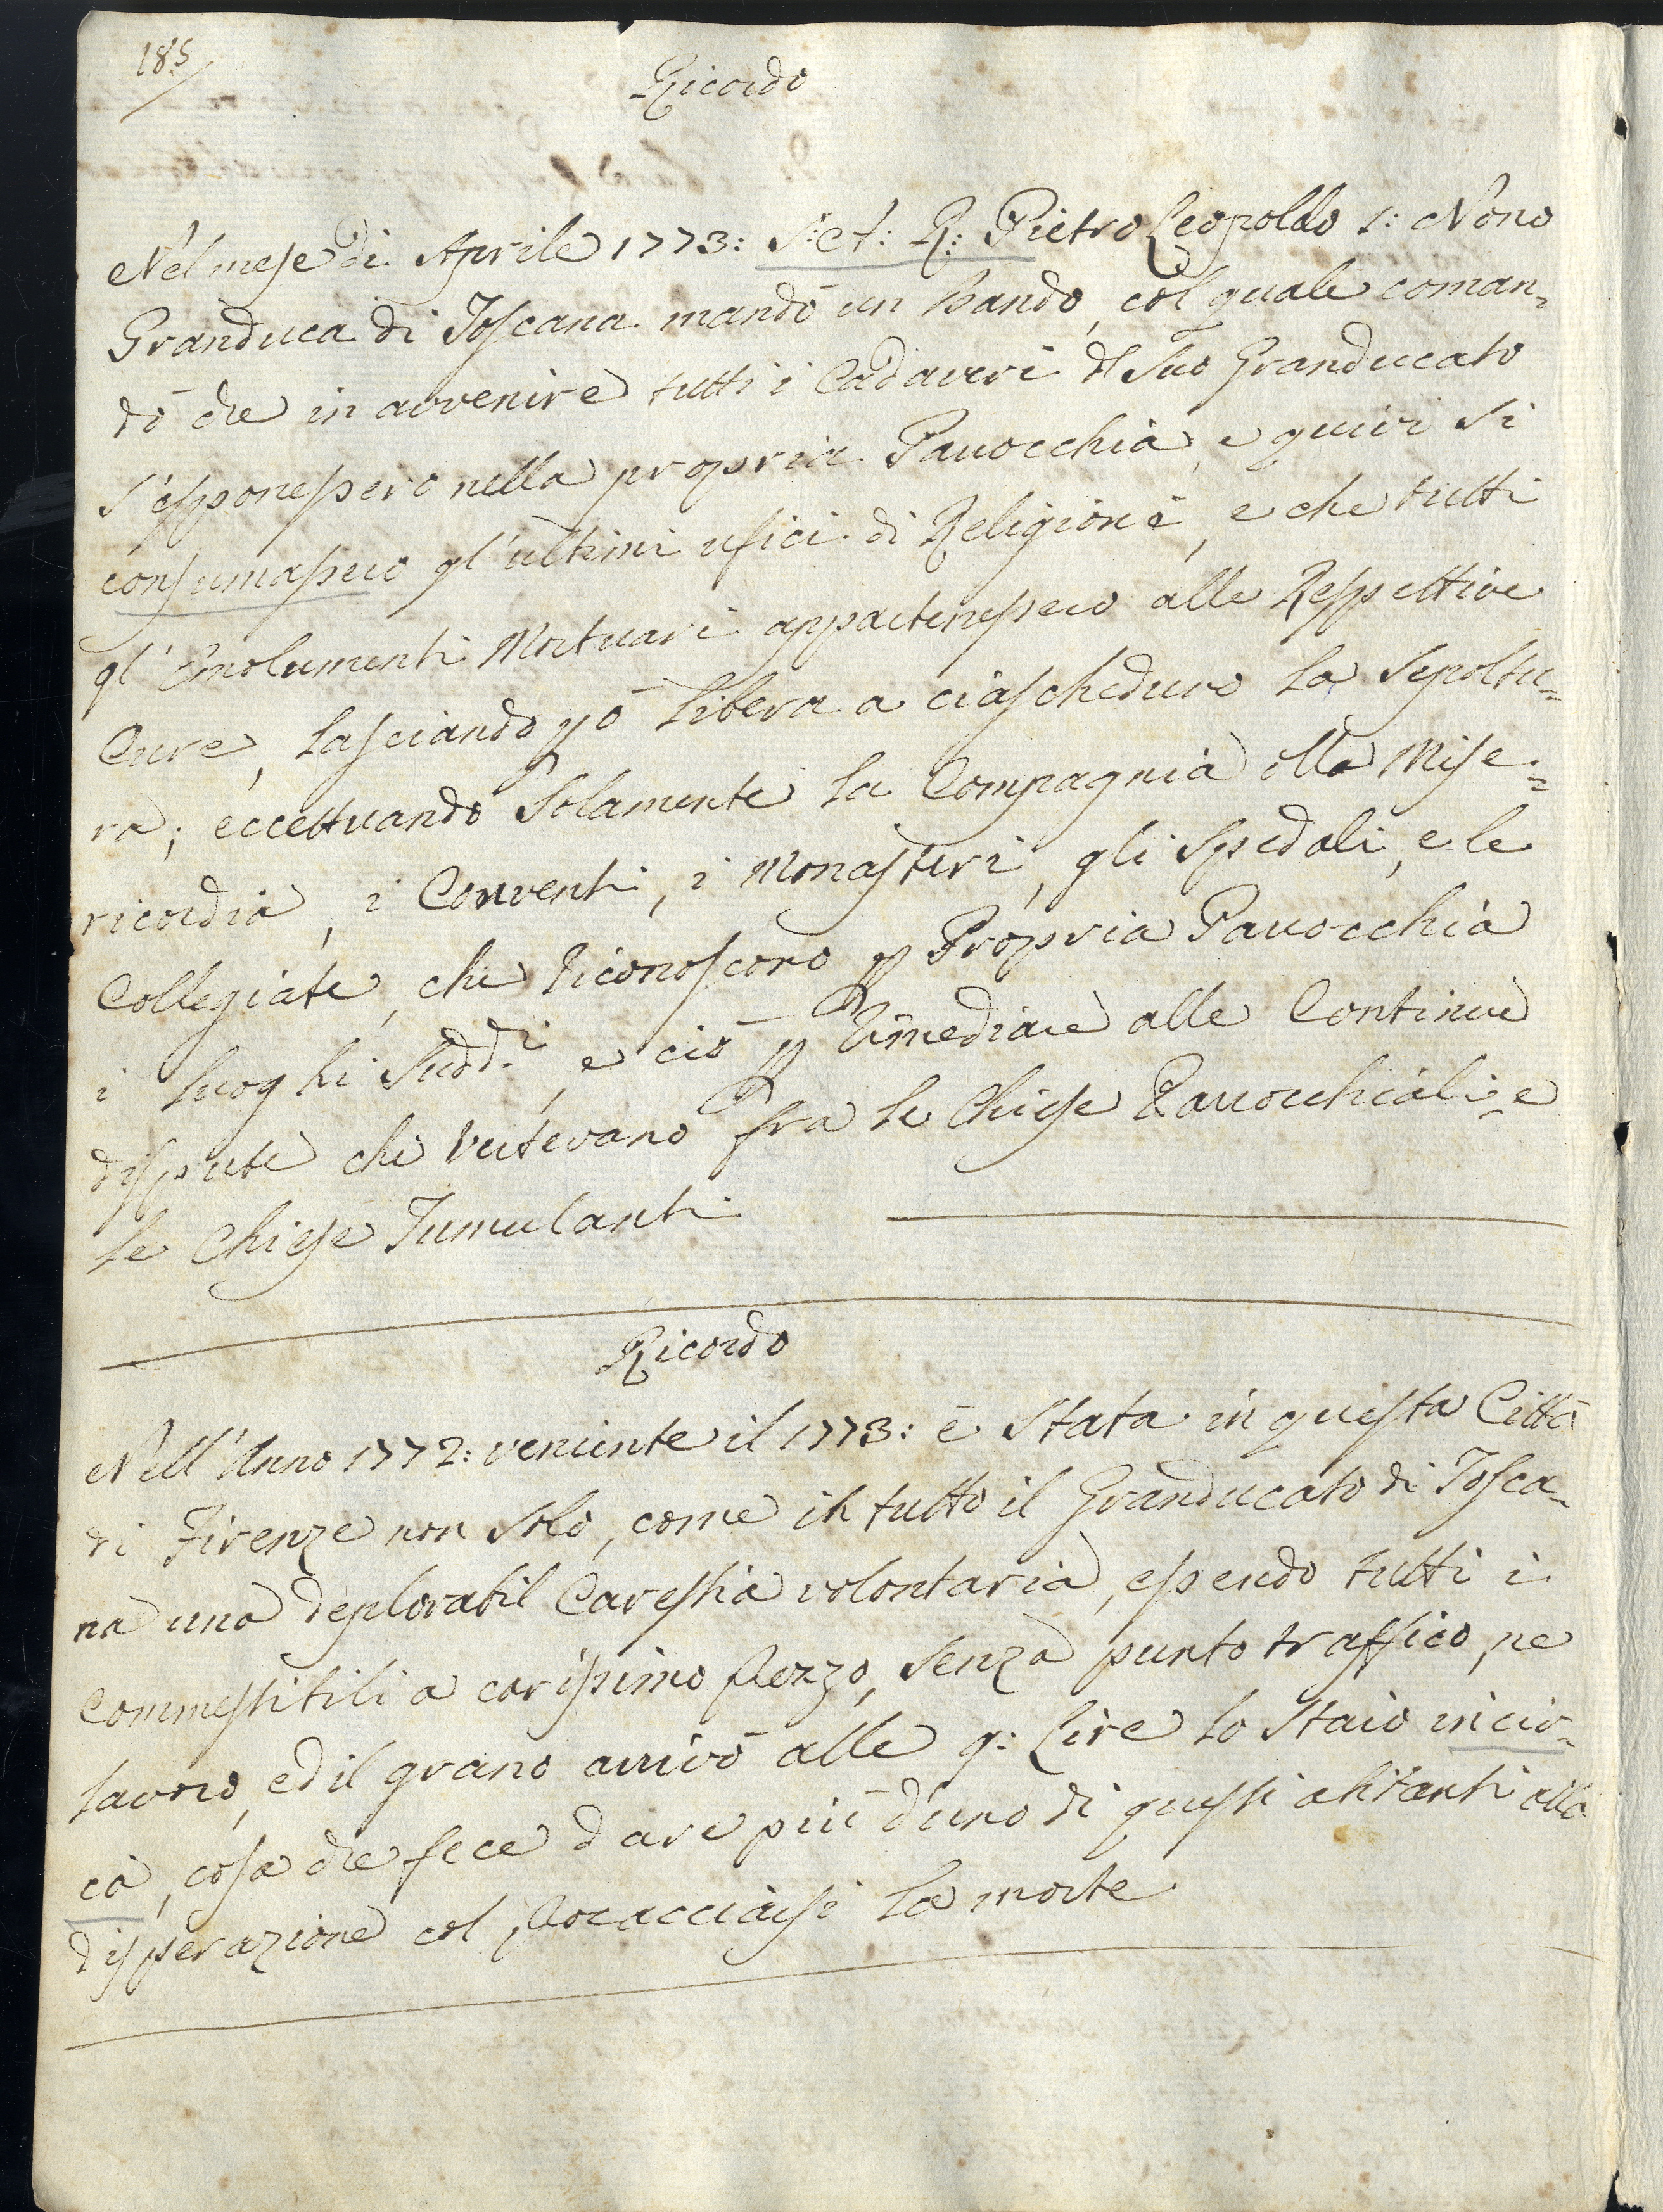 185
Ricordo
Nel mese di Aprile 1773: S: A: R: Pietro Leopoldo I: Nono
Granduca di Toscana mandò un bando, col quale coman=
dò che in avvenire tutti i Cadaveri dl Suo Granducato
s'esponessero nella propria Parrocchia, e quivi si
consumassero gl'ultimi ufici di Religione, e che tutti
gl'Emolumenti Mortuari appartenessero alle Respettive
Cure, lasciando pò libera a ciascheduno la Sepoltu=
ra; eccettuando Solamente la Compagnia dlla Mise=
ricordia, i Conventi, i Monasteri, gli Spedali, e le
Collegiate, che riconoscono p Propria Parrocchia
i luoghi Sudd.i, e ciò p rimediare alle Continue
dispute che vertevano fra le Chiese Parrocchiali, e
le Chiese Tumulanti
Ricordo
Nell'Anno 1772: veniente il 1773: è Stata in questa Città
di Firenze non solo, come in tutto il Granducato di Tosca=
na una deplorabil Carestia volontaria, essendo tutti i
Commestibili a carissimo prezzo, senza punto traffico, ne
lavoro, ed il grano arrivò alle 9: Lire lo Staio incir=
ca, cosa che fece dare più d'uno di questi abitanti alla
disperazione col procacciarsi la morte